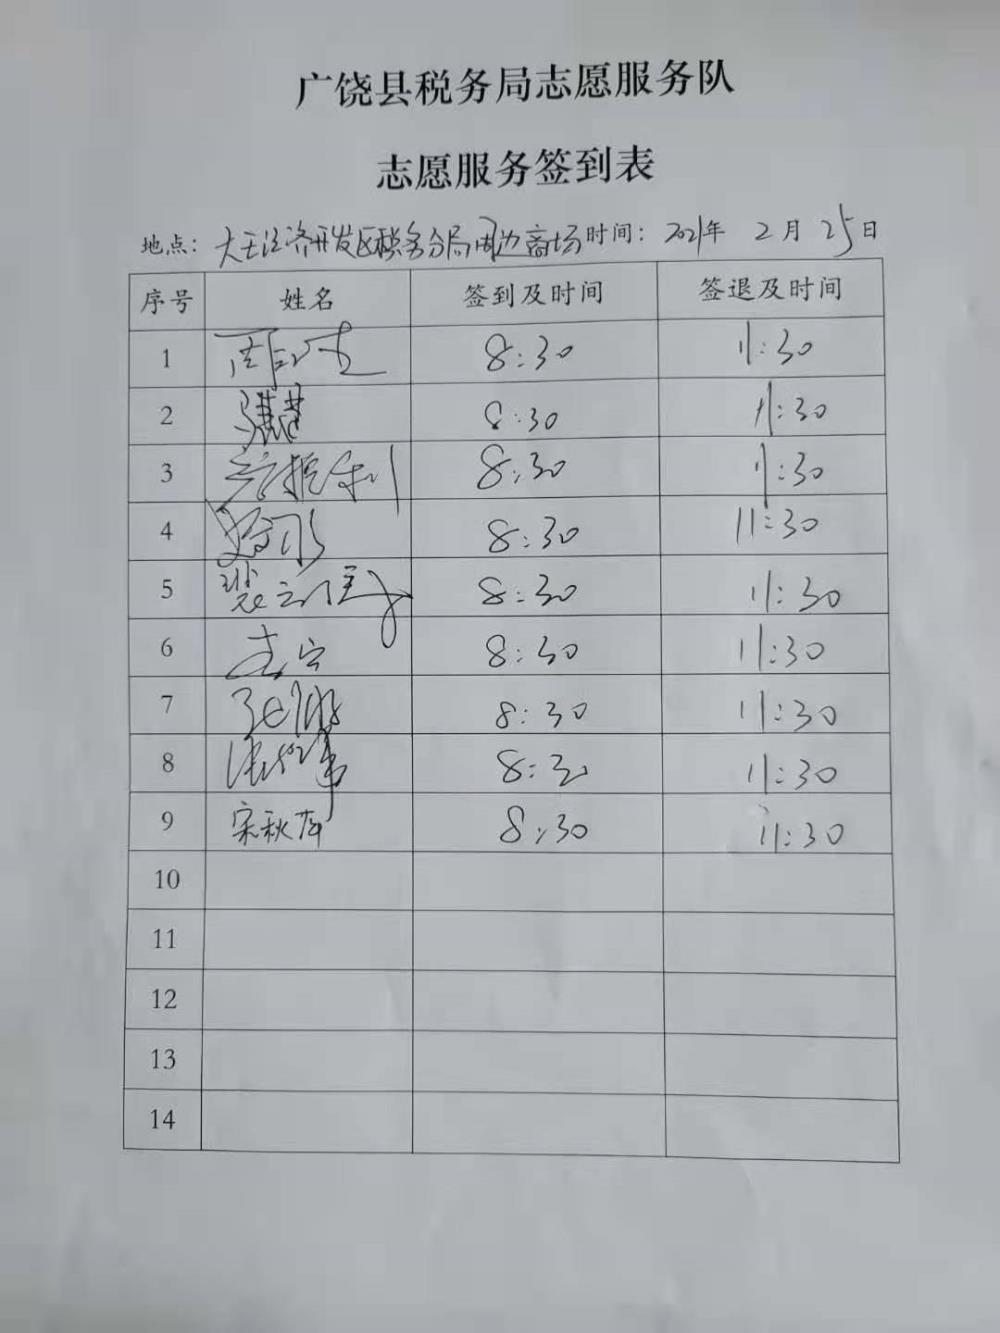 广饶县税务局志愿服务队
志愿服务签到表
地点：大王经济开发区税务分局周边商场 时间：2021年 2月 25日
序号 姓名 签到及时间 签退及时间
1 8:30 11:30
2 8:30 11:30
3 8:30 11:30
4 8:30 11:30
5 8:30 11:30
6 8:30 11:30
7 8:30 11:30
8 8:30 11:30
9 宋秋萍 8:30 11:30
10
11
12
13
14